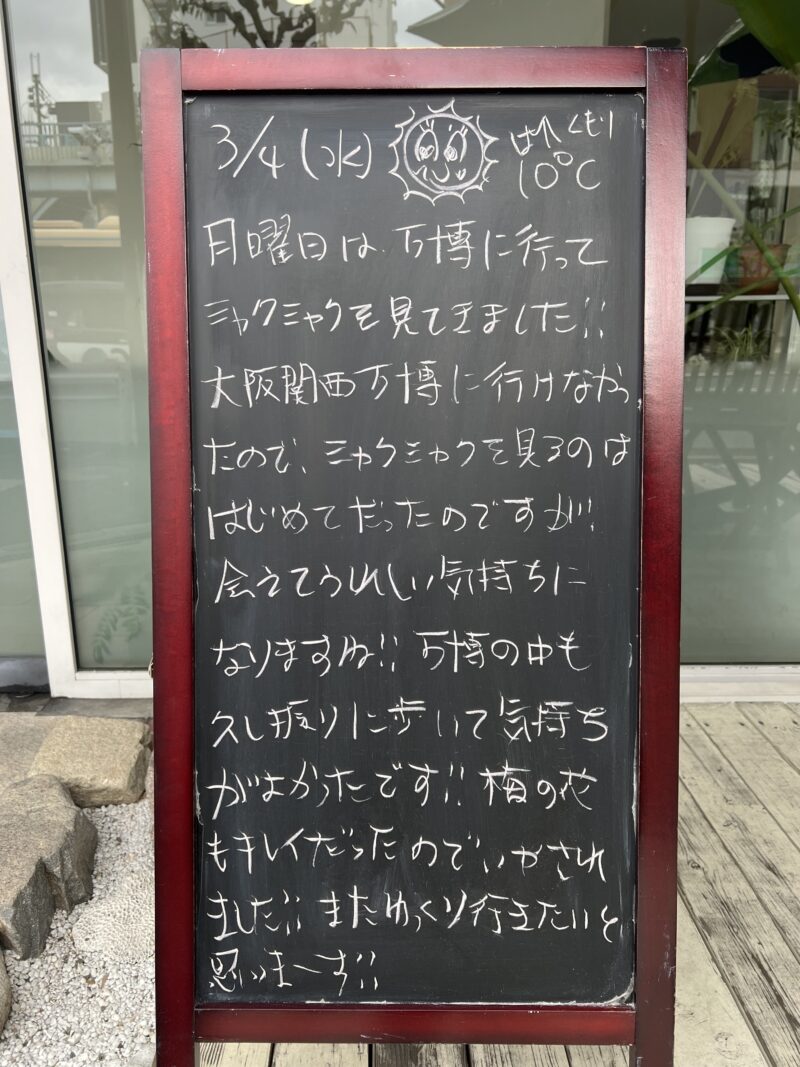 3/4 (水) はれくもり
10°C
月曜日は、万博に行って
ミャクミャクを見てきました!!
大阪関西万博に行けなかっ
たので、ミャクミャクを見るのは
はじめてだったのですが!
会えてうれしい気持ちに
なりますね!! 万博の中も
久し振りに歩いて気持ち
がよかったです!! 梅の花
もキレイだったのでいやされ
ました!! またゆっくり行きたいと
思いまーす!!